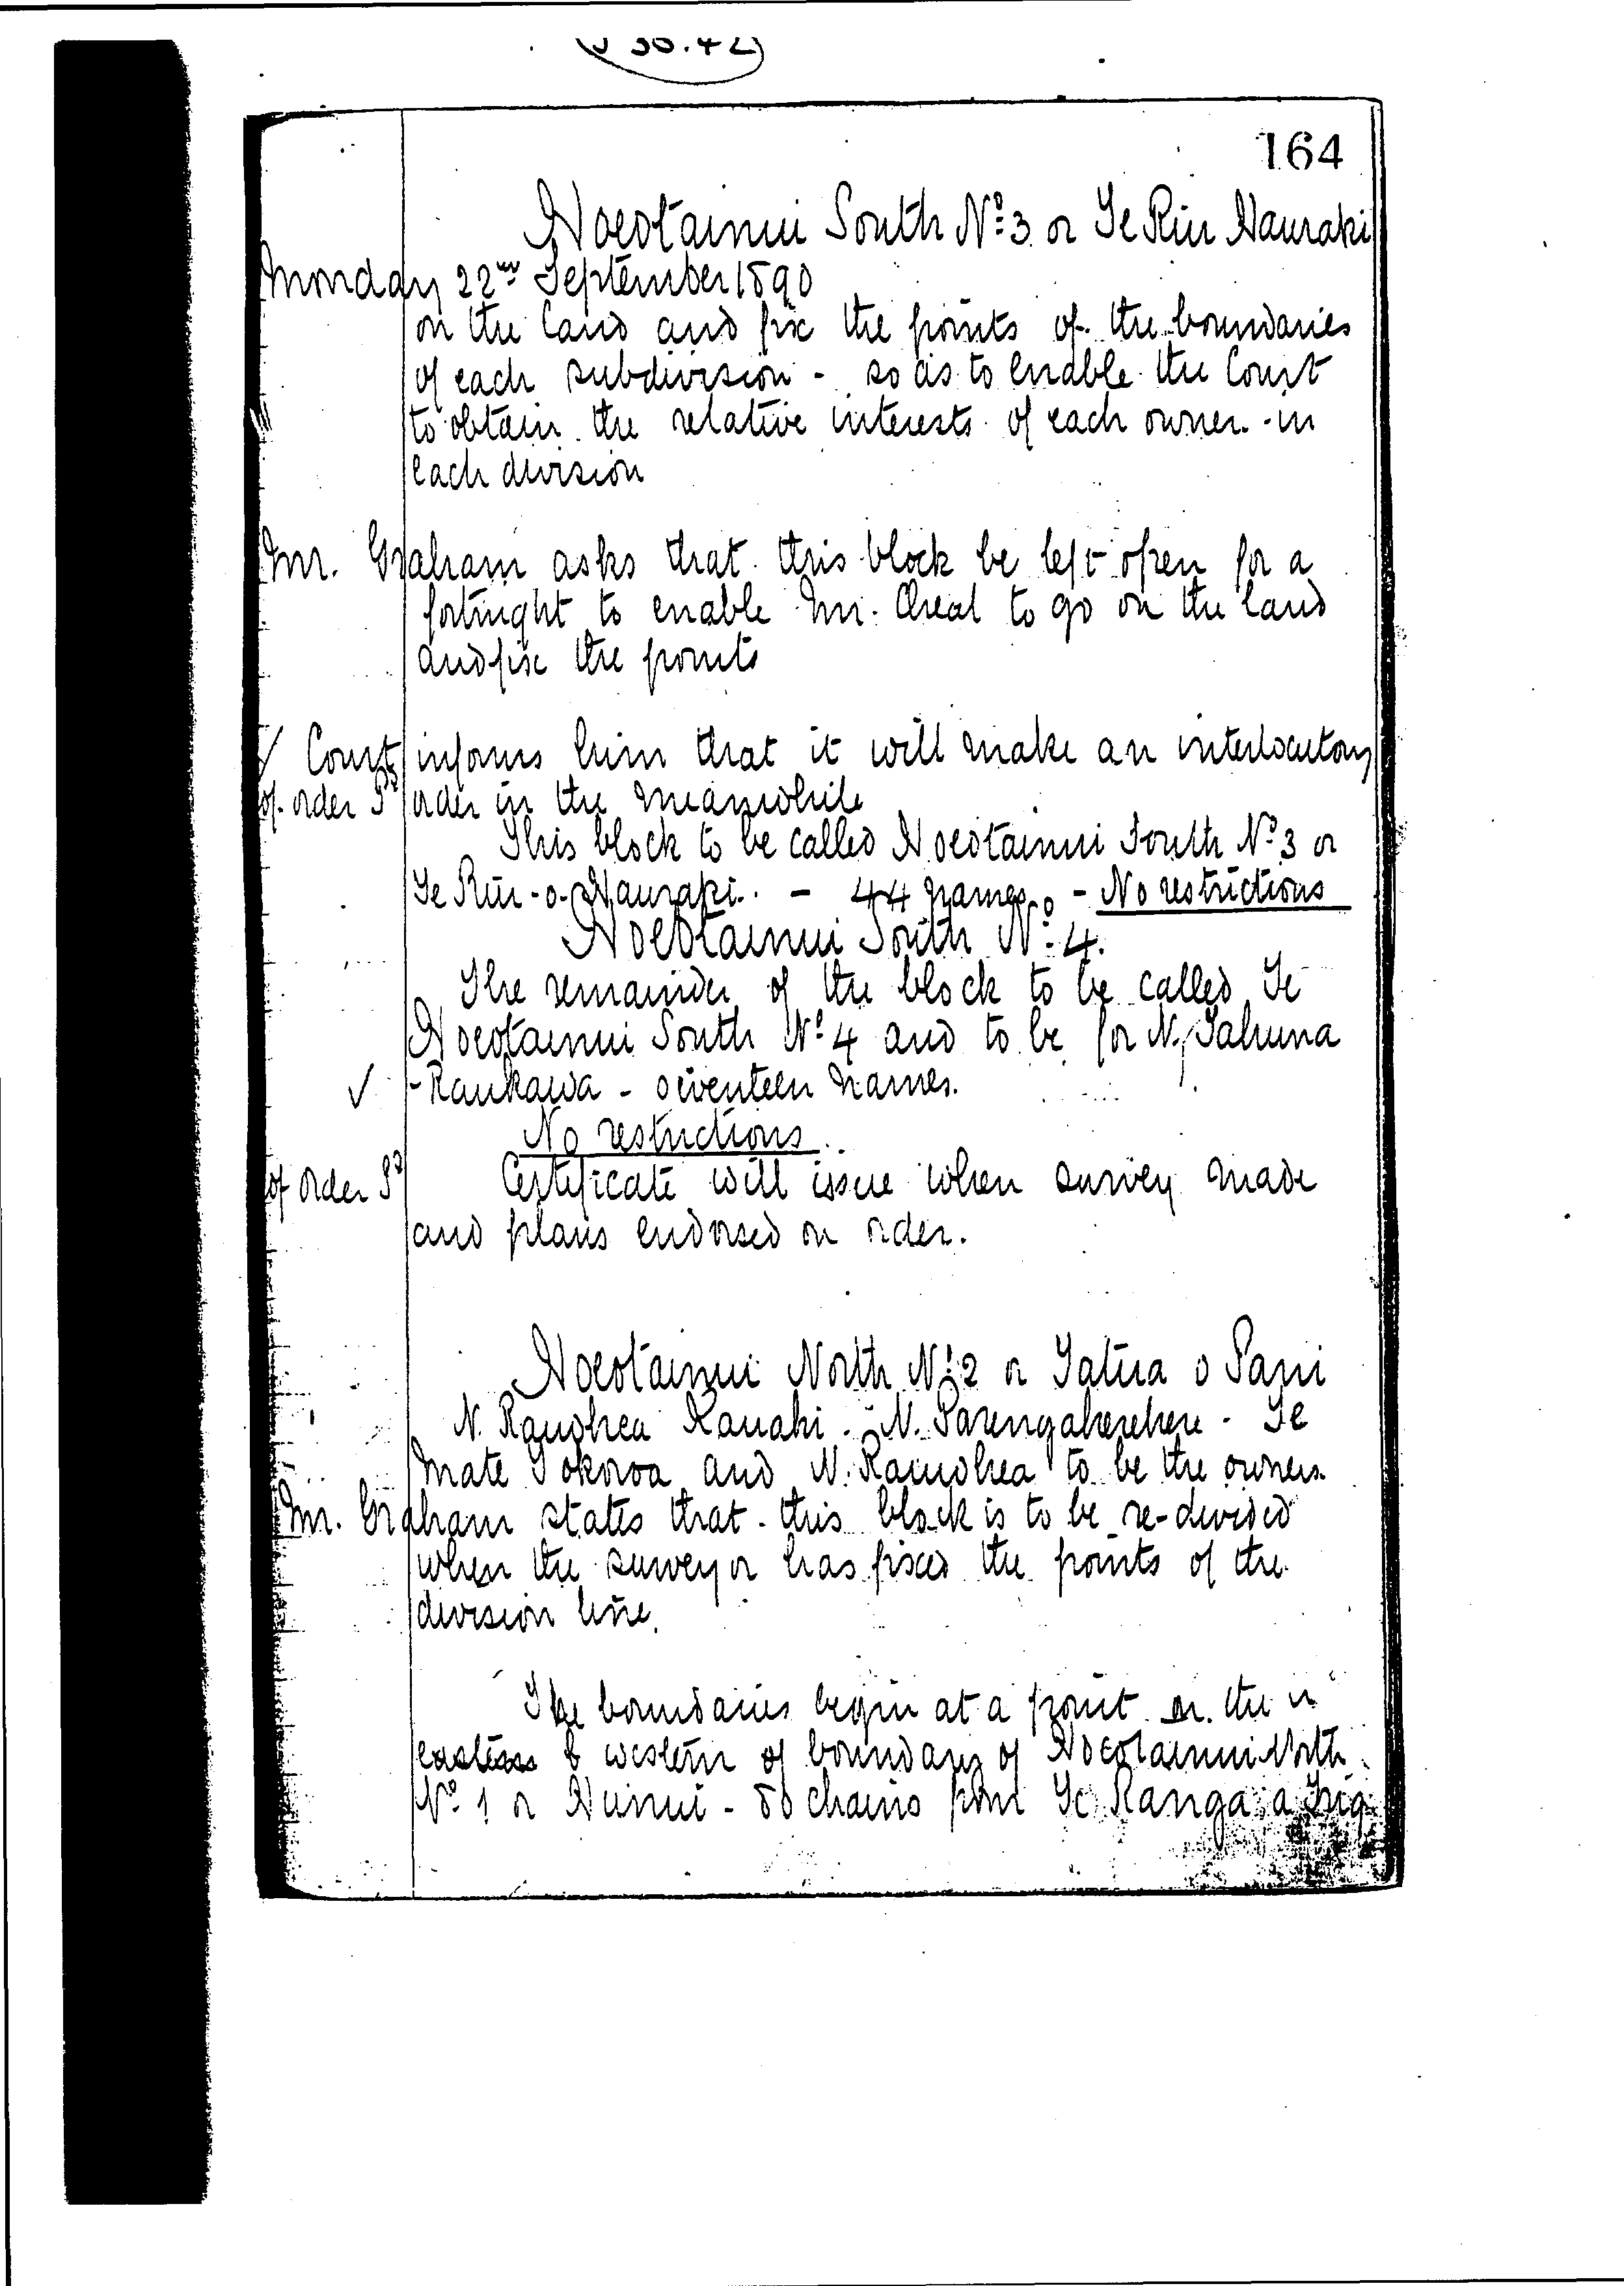 164
Hoeotainui South No. 3 or Te Riu Hauraki
Monday 22nd September 1890
on the land and fix the points of the boundaries
of each subdivision - so as to enable the Court
to obtain the relative interests of each owner in
each division
Mr. Graham asks that this block be left open for a
fortnight to enable Mr. Cheal to go on the land
and fix the points
✓ Court informs him that it will make an interlocutory
of order order in the meanwhile
This block to be called Hoeotainui South No. 3 or
Te Riu-o-Hauraki. - 44 names. - No restrictions
Hoeotainui South No. 4.
The remainder of the block to be called Te
Hoeotainui South No. 4 and to be for N. Tahuna
✓ - Raukawa - seventeen names.
No restrictions.
of order Certificate will issue when survey made
and plans endorsed on order.
Hoeotainui North No. 2 or Tatua o Pani
N. Rauhea Kauahi - N. Parengaherehere - Te
Mate Tokoroa and N. Rauohea to be the owners
Mr. Graham states that this block is to be re-divided
when the surveyor has fixed the points of the
division line.
The boundaries begin at a point on the
eastern & western of boundary of Hoeotainui North
No. 1 or Hunui - 80 chains from Te Ranga a Trig